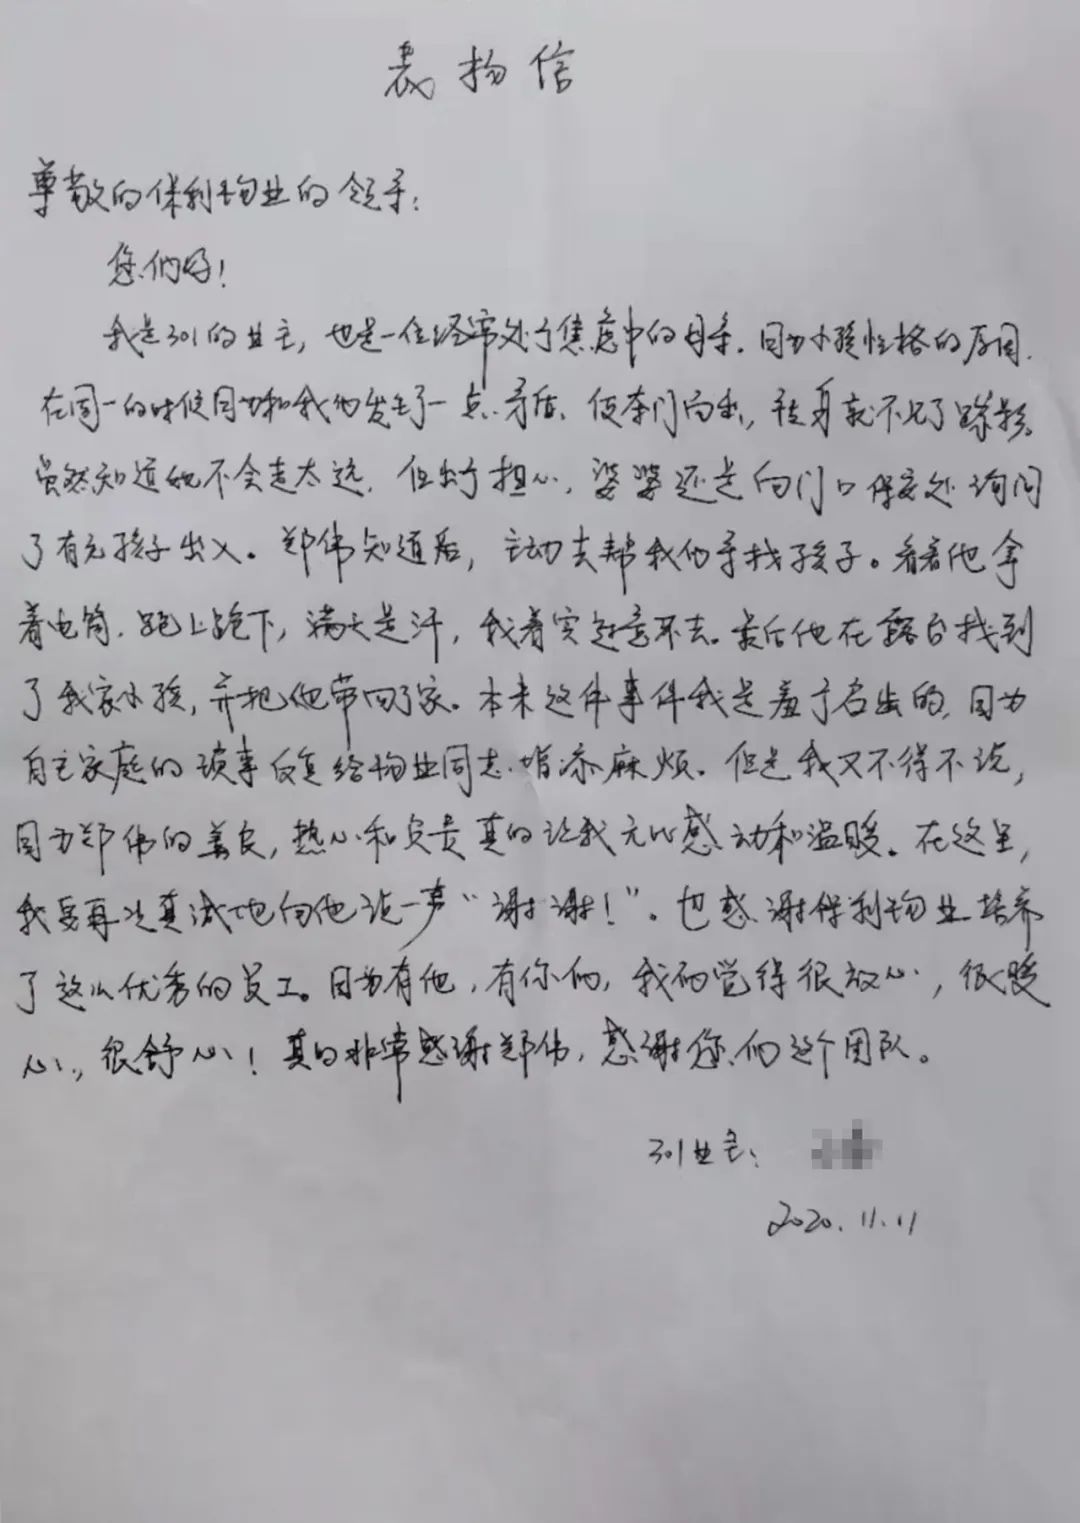 表扬信
尊敬的保利物业的领导：
您们好！
我是301的业主，也是一位经常处于焦虑中的母亲。因为小孩性格的原因，
在周一的时候因为和我们发生了一点矛盾，便夺门而出，转身就不见了踪影。
虽然知道她不会走太远，但出于担心，婆婆还是向门口保安处询问
了有无孩子出入。郑伟知道后，主动去帮我们寻找孩子。看着他拿
着电筒，跑上跑下，满头是汗，我着实过意不去。最后他在露台找到
了我家小孩，并把他带回了家。本来这件事件我是羞于启出的，因为
自己家庭的琐事反复给物业同志增添麻烦。但是我又不得不说，
因为郑伟的善良，热心和负责真的让我无比感动和温暖。在这里，
我要再次真诚地向他说一声“谢谢！”。也感谢保利物业培养
了这么优秀的员工。因为有他，有你们，我们觉得很放心，很暖
心，很舒心！真的非常感谢郑伟，感谢您们这个团队。
301业主：
2020.11.11